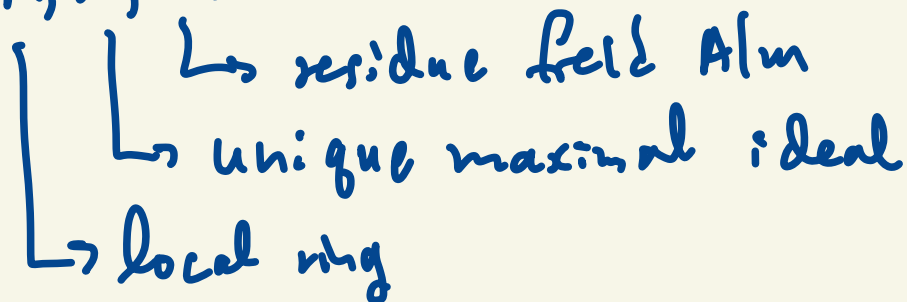 residue field A/m
unique maximal ideal
local ring